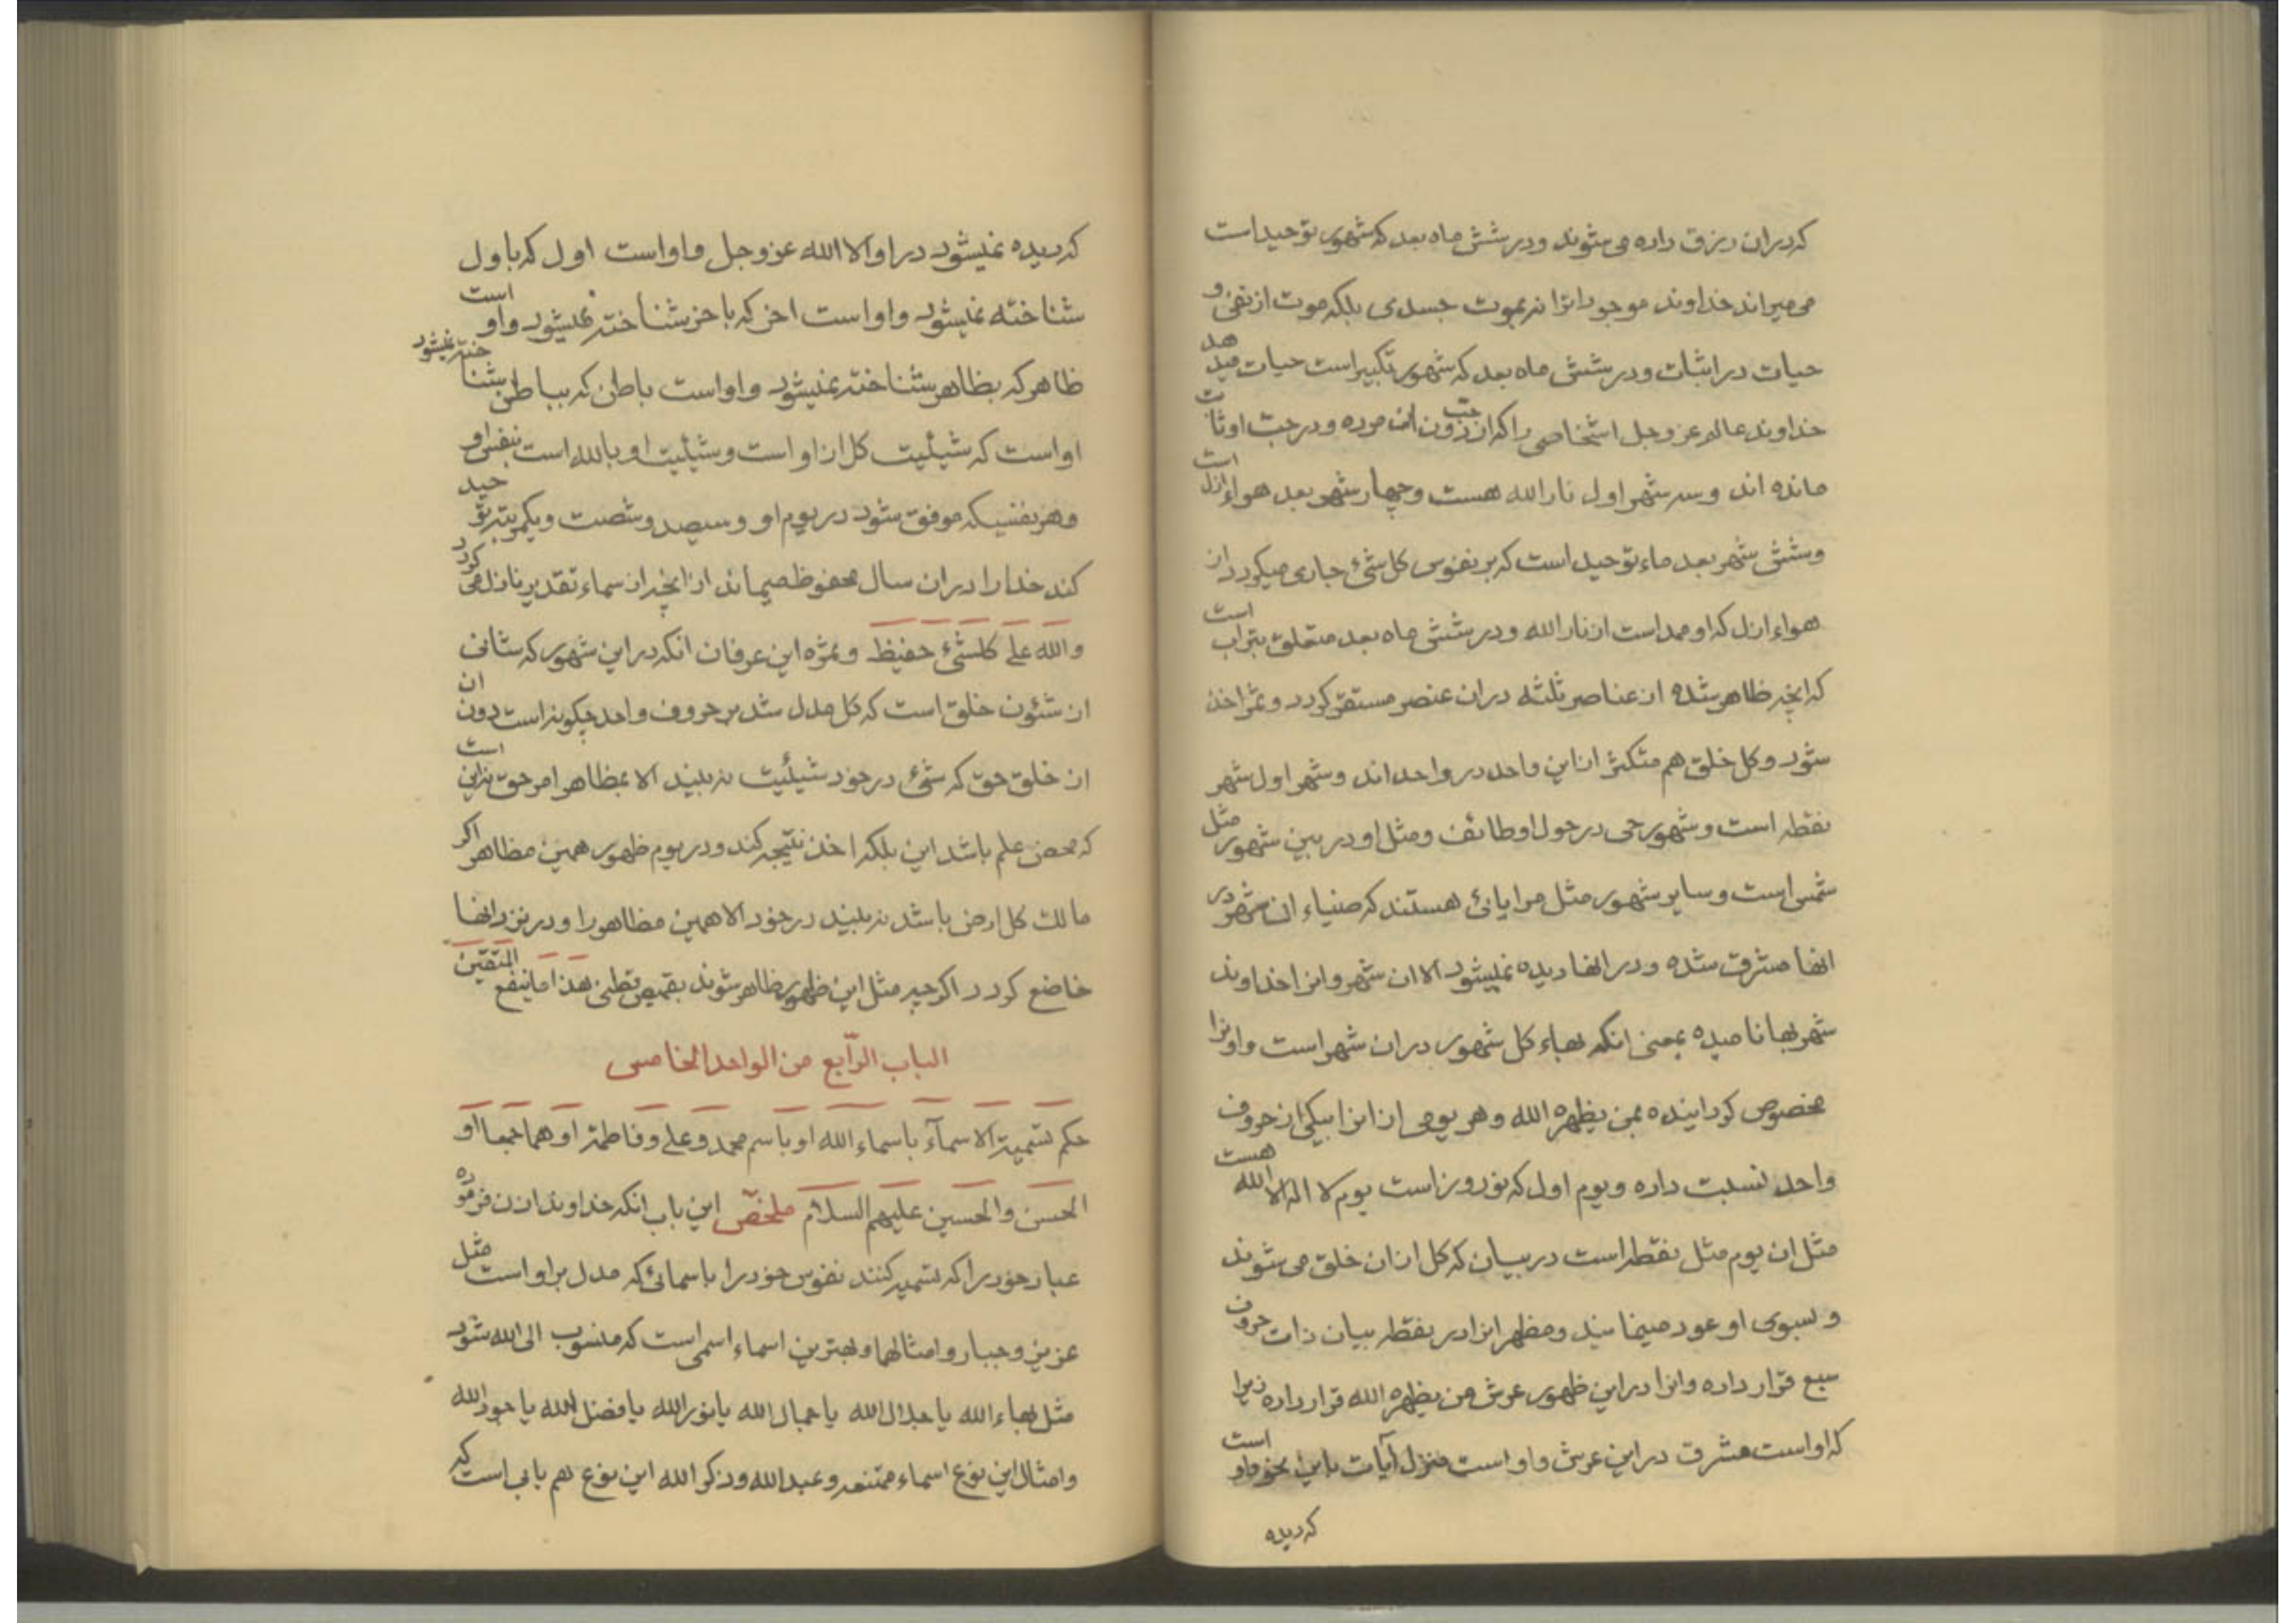 که در ان رزق داده می شوند و در شش ماه بعد که شهور توحید است
می میراند خداوند موجودات را نه بموت جسدی بلکه موت از نفی و
حیات در اثبات و در شش ماه بعد که شهور تکبیر است حیات میدهد
خداوند عالم عز و جل اشخاصی را که از دون حب ان مرده و در حب او ثابت
مانده اند و سه شهر اول نار الله هست و چهار شهر بعد هواء ازل است
و شش شهر بعد ماء توحید است که بر نفوس کل شئ جاری میکردد از
هواء ازل که او ممد است از نار الله و در شش ماه بعد متعلق بتراب است
که انچه ظاهر شده از عناصر ثلثه در ان عنصر مستقر کردد و ثمر اخذ
شود و کل خلق هم متکثر از این واحد در واحد اند و شهر اول شهر
نقطه است و شهور حی در حول او طائف و مثل او در بین شهور مثل
شمس است و سایر شهور مثل مرایائی هستند که ضیاء ان شهر در
انها مشرق شده و در انها دیده نمیشود الا ان شهر و انرا خداوند
شهر بها نامیده بمعنی انکه بهاء کل شهور در ان شهر است و او را
مخصوص کردانیده بمن یظهره الله و هر یومی از انرا بیکی از حروف
واحد نسبت داده و یوم اول که نوروز است یوم لا اله الا الله هست
مثل ان یوم مثل نقطه است در بیان که کل از ان خلق می شوند
و بسوی او عود مینمایند و مظهر انرا در نقطه بیان ذات حروف
سبع قرار داده و انرا در این ظهور عرش من یظهره الله قرار داده زیرا
که او است مشرق در این عرش و او است منزل آیات باین نحو و او است
که دیده
که دیده نمیشود در او الا الله عز و جل و او است اول که باول
شناخته نمیشود و او است اخر که باخر شناخته نمیشود و او است
ظاهر که بظاهر شناخته نمیشود و او است باطن که بباطن شناخته نمیشود
او است که شیئیت کل از او است و شیئیت او بالله است بنفس او
و هر نفسیکه موفق شود در یوم او و سیصد و شصت و یکمرتبه توحید
کند خدا را در ان سال محفوظ میماند از انچه از سماء تقدیر نازل می کردد
والله علی کلشئ حفیظ و ثمره این عرفان انکه در این شهور که شانی
از شئون خلق است که کل مدل شد بر حروف واحد چکونه است دون ان
از خلق حق که شئ در خود شیئیت نه بیند الا بمظاهر امر حق نه این
که محض علم باشد این بلکه اخذ نتیجه کند و در یوم ظهور همین مظاهر اکر
مالک کل ارض باشد نه بیند در خود الا همین مظاهر را و در نزد انها
خاضع کردد اکرچه مثل این ظهور ظاهر شوند بقمیص قطنی هذا ما ینفع المتقین
الباب الرّابع من الواحد الخامس
حکم تسمیة الاسمآء باسماء الله او باسم محمد و علی و فاطمة او هما جمعا او
الحسن والحسین علیهم السلام ملخّص این باب انکه خداوند اذن فرموده
عباد خود را که تسمیه کنند نفوس خود را باسمائی که مدل بر او است مثل
عزیز و جبار و امثالها و بهترین اسماء اسمی است که منسوب الی الله شود
مثل بهاء الله یا جلال الله یا جمال الله یا نور الله یا فضل الله یا جود الله
و امثال این نوع اسماء ممتنعه و عبد الله و ذکر الله این نوع هم بابی است که